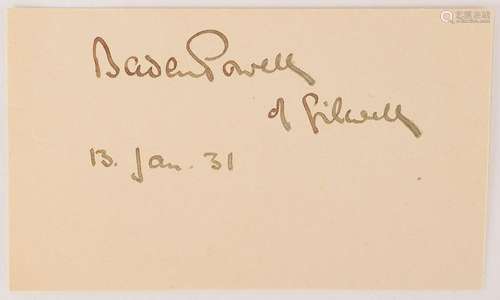 Baden Powell
of Gilwell
13. Jan. 31